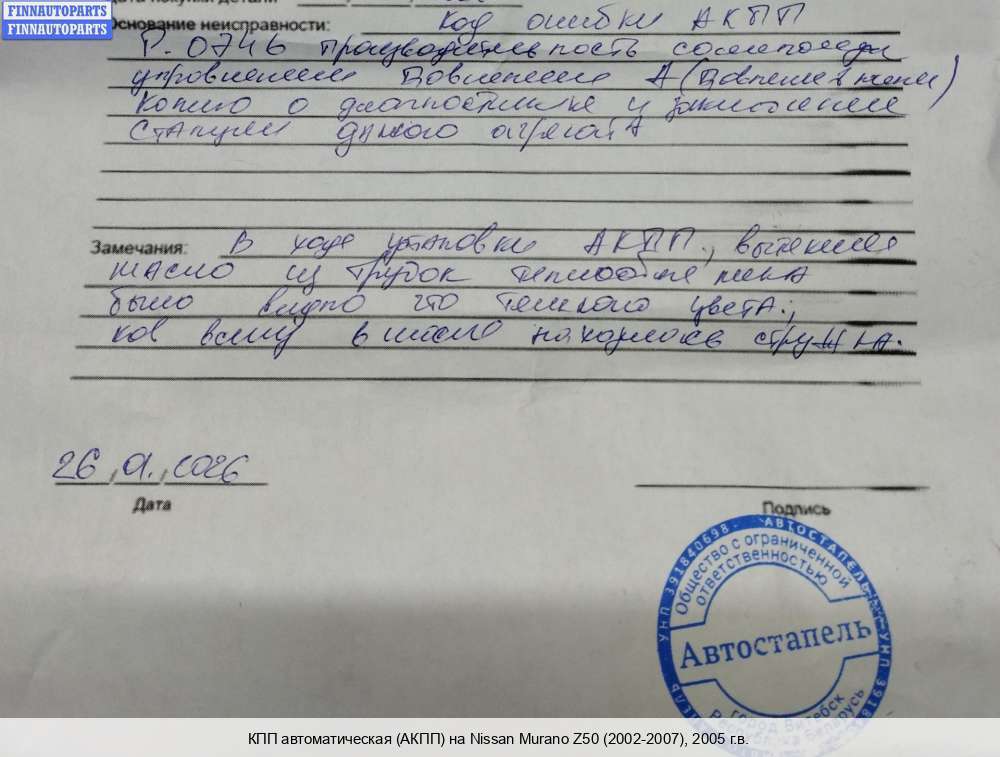 FINNAUTOPARTS
FINNAUTOPARTS
Дата покупки детали
Основание неисправности: Код ошибки АКПП
P.0746 производительность соленоида
управлением Давлением А (Давление
Копию о диагностике и заключение
станции данного агрегата
Замечания: В ходе установки АКПП, вытекшее
масло из трубок теплообменника
было видно что темного цвета.,
ко всему в масле находилась стружка.
26.01.2026
Дата
Подпись
УНП 391840698 АВТОСТАПЕЛЬ УНП 3918
Общество с ограниченной
ответственностью
Автостапель
город Витебск
Республика Беларусь
КПП автоматическая (АКПП) на Nissan Murano Z50 (2002-2007), 2005 г.в.